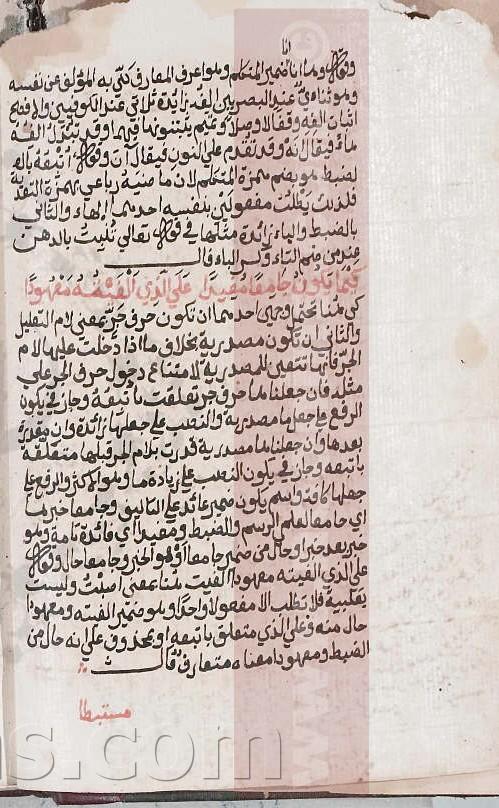 اما
وقوله وما انا ضمير المتكلم وهو اعرف المعارف كنى به المؤلف عن نفسه
وهو ثناءي عند البصريين الفه زائدة ثلاثي عند الكوفيين والافصح
اثبات الفه وقفا لا وصلا وتميم يثبتونها فيهما وقد تبدل الفه
هاء فيقال انه وقد تقدم على النون فيقال آن وقوله اتبعه بال
لضبط هو بضم همزة المتكلم لان ماضيه رباعي بهمزة التعدية
فلذلك يطلب مفعولين بنفسه احدهما الهاء والثاني
بالضبط والباء زائدة مثلها في قوله تعالى تنبت بالدهن
عند من ضم التاء وكسر الباء قال
كيما يكون جامعا مفيدا على الذي الفيته معهودا
كي هنا تحتمل وجهين احدهما ان تكون حرف جر بمعنى لام التعليل
والثاني ان تكون مصدرية بخلاف ما اذا دخلت عليها لام
الجر فانها تتعين للمصدرية لامتناع دخول حرف الجر على
مثله فان جعلنا ها حرف جر تعلقت باتبعه وجاز في يكون
الرفع على جعل ما مصدرية والنصب على جعلها زائدة وان مقدرة
بعدها وان جعلنا ها مصدرية قدرت بلام الجر قبلها متعلقة
باتبعه وجاز في يكون النصب على زيادة ما وهو الاكثر والرفع على
جعلها كافة واسم يكون ضمير عائد على التاليف وجامعا خبرها
اي جامعا لعلمي الرسم والضبط ومفيدا اي فائدة تامة وهو
خبر بعد خبر او حال من ضمير جامعا او هو الخبر وجامعا حال وقوله
على الذي الفيته معهودا الفيت هنا بمعنى اصبت وليست
بقلبية فلا تطلب الا مفعولا واحدا وهو ضمير الفيته ومعهودا
حال منه وعلى الذي متعلق باتبعه او بمحذوف على انه حال من
الضبط ومعهودا معناه متعارف قال
مستنبطا
s.com